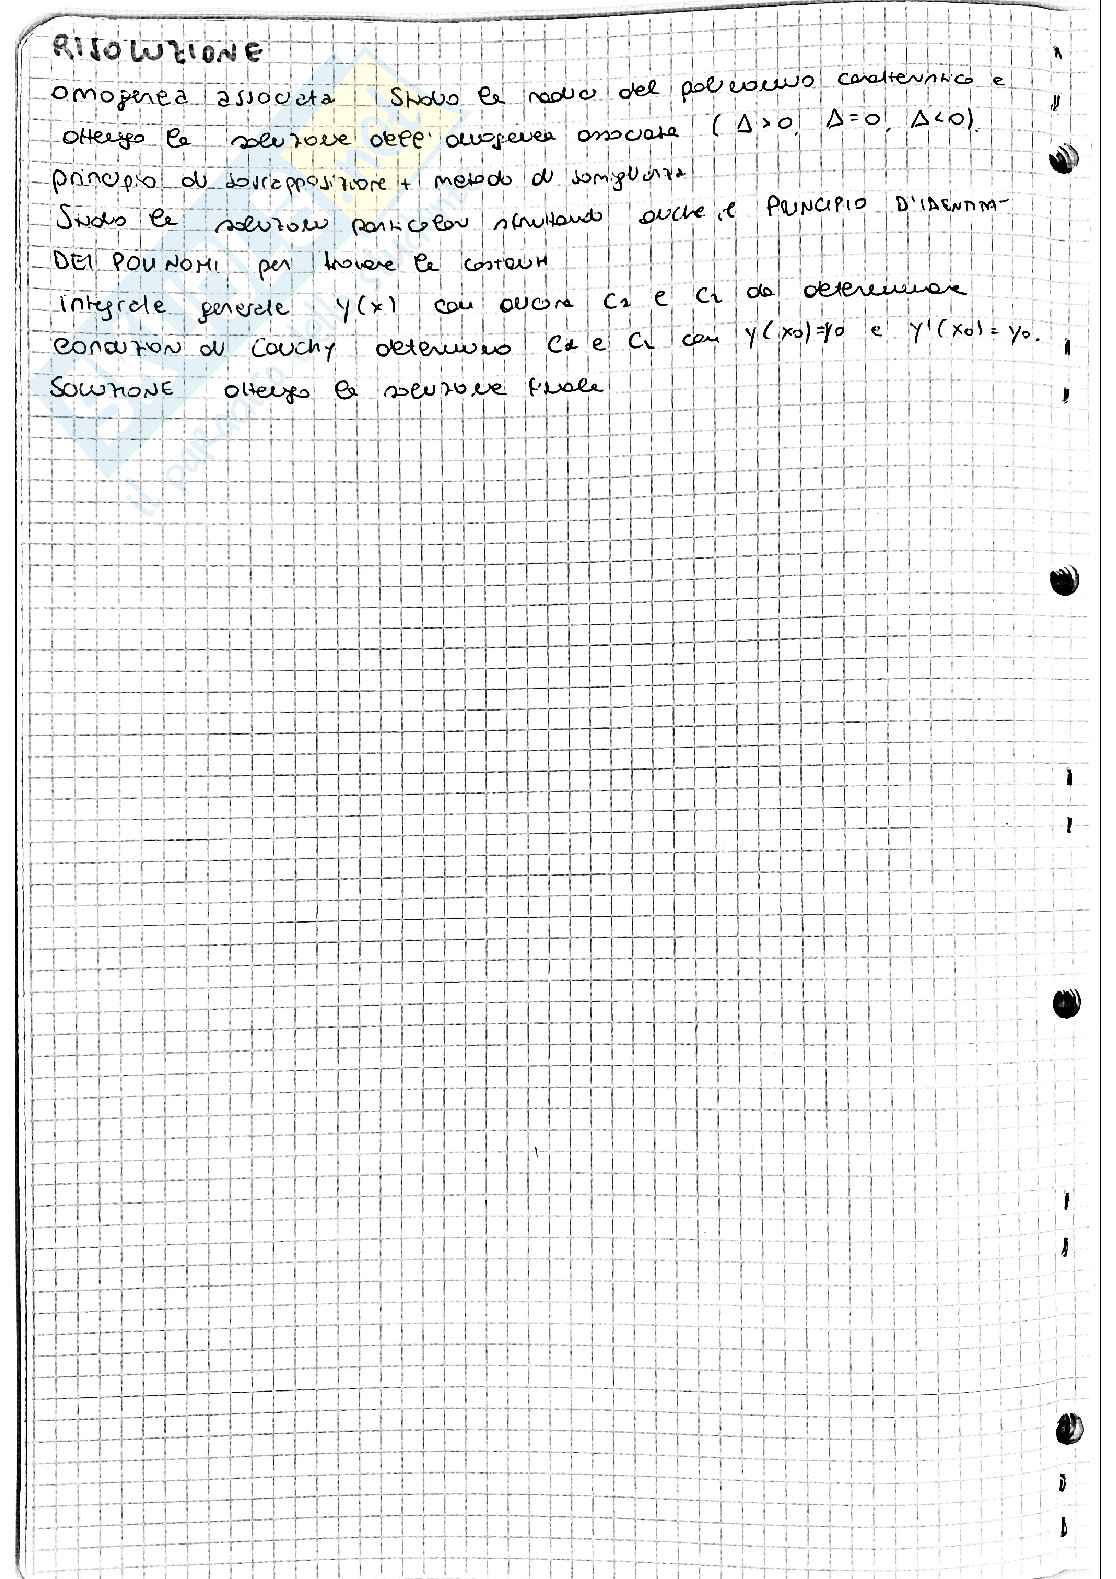 RISOLUZIONE
omogenea associata Studio le radici del polinomio caratteristico e
ottengo la soluzione dell'omogenea associata ( Δ>0, Δ=0, Δ<0).
principio di sovrapposizione + metodo di somiglianza
Studio le soluzioni particolari sfruttando anche il PRINCIPIO D'IDENTITA'
DEI POLINOMI per trovare le costanti
integrale generale y(x) con ancora C1 e C2 da determinare
condizioni di Cauchy determino C1 e C2 con y(x0)=y0 e y'(x0)=y0.
SOLUZIONE ottengo la soluzione finale